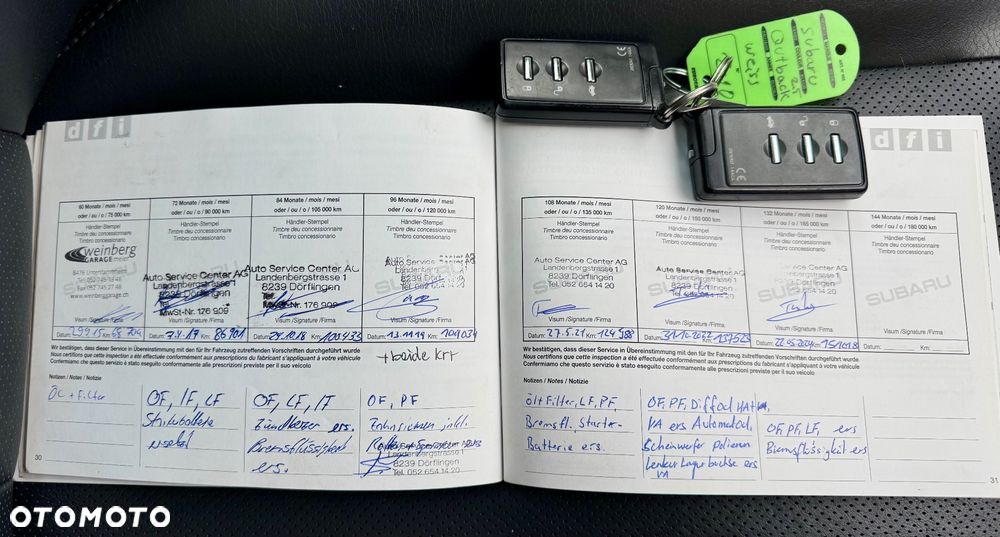 Subaru
Outback 2.5
weiss
dfi
60 Monate / mois / mesi
oder / ou / o / 75 000 km
Händler-Stempel
Timbre deu concessionnaire
Timbro concessionario
weinberg
GARAGE
www.weinberggarage.ch
Visum /Signature /Firma
72 Monate / mois / mesi
oder / ou / o / 90 000 km
Händler-Stempel
Timbre deu concessionnaire
Timbro concessionario
Auto Service Center AG
Landenbergstrasse 1
8239 Dörflingen
Tel.
MwSt-Nr. 176 909
Visum /Signature /Firma
84 Monate / mois / mesi
oder / ou / o / 105 000 km
Händler-Stempel
Timbre deu concessionnaire
Timbro concessionario
Auto Service Center AG
Landenbergstrasse 1
8239 Dörflingen
Tel.
MwSt-Nr. 176 909
Visum /Signature /Firma
96 Monate / mois / mesi
oder / ou / o / 120 000 km
Händler-Stempel
Timbre deu concessionnaire
Timbro concessionario
Auto Service Center AG
Landenbergstrasse 1
8239
Tel. 052 654 14 20
Visum /Signature /Firma
Datum: Km:
Datum: 7.4.17 Km: 86901
Datum: Km:
Datum: 13.11.19 Km: 109034
Wir bestätigen, dass dieser Service in Übereinstimmung mit den für Ihr Fahrzeug zutreffenden Vorschriften durchgeführt wurde
Nous certifions que cette inspection a été effectuée conformément aux prescriptions du fabricant s'appliquant à votre véhicule
Confermiamo che questo servizio è stato eseguito conformemente alle prescrizioni previste per il suo veicolo
+ beide KRT
Notizen / Notes / Notizie
Öl + Filter
OF, IF, LF
OF, LF, IT
Zündkerzen ers.
Bremsflüssigkeit
ers.
OF, PF
Zahnriemen inkl.
Landenbergstrasse 1
8239 Dörflingen
Tel. 052 654 14 20
30
dfi
108 Monate / mois / mesi
oder / ou / o / 135 000 km
Händler-Stempel
Timbre deu concessionnaire
Timbro concessionario
Auto Service Center AG
Landenbergstrasse 1
8239 Dörflingen
Tel. 052 654 14 20
Visum /Signature /Firma
120 Monate / mois / mesi
oder / ou / o / 150 000 km
Händler-Stempel
Timbre deu concessionnaire
Timbro concessionario
Auto Service Center AG
Landenbergstrasse 1
Tel. 052 654 14 20
Visum /Signature /Firma
132 Monate / mois / mesi
oder / ou / o / 165 000 km
Händler-Stempel
Timbre deu concessionnaire
Timbro concessionario
Auto Service Center AG
Landenbergstrasse 1
8239 Dörflingen
Tel. 052 654 14 20
Visum /Signature /Firma
144 Monate / mois / mesi
oder / ou / o / 180 000 km
Händler-Stempel
Timbre deu concessionnaire
Timbro concessionario
SUBARU
Visum /Signature /Firma
Datum: 27.5.21 Km: 124 588
Datum: 31.10.2022 Km: 137523
Datum: 22.05.2024 Km: 151018
Datum: Km:
Wir bestätigen, dass dieser Service in Übereinstimmung mit den für Ihr Fahrzeug zutreffenden Vorschriften durchgeführt wurde
Nous certifions que cette inspection a été effectuée conformément aux prescriptions du fabricant s'appliquant à votre véhicule
Confermiamo che questo servizio è stato eseguito conformemente alle prescrizioni previste per il suo veicolo
Notizen / Notes / Notizie
Öl+Filter, LF, PF,
Bremsfl. Starter-
Batterie ers.
OF, PF, Diffoel HA+VA,
VA ers Automatoel.
Scheinwerfer Polieren
Lenker Lagerbuchse ers
VA
OF, PF, LF, ers
Bremsflüssigkeit ers
31
OTOMOTO